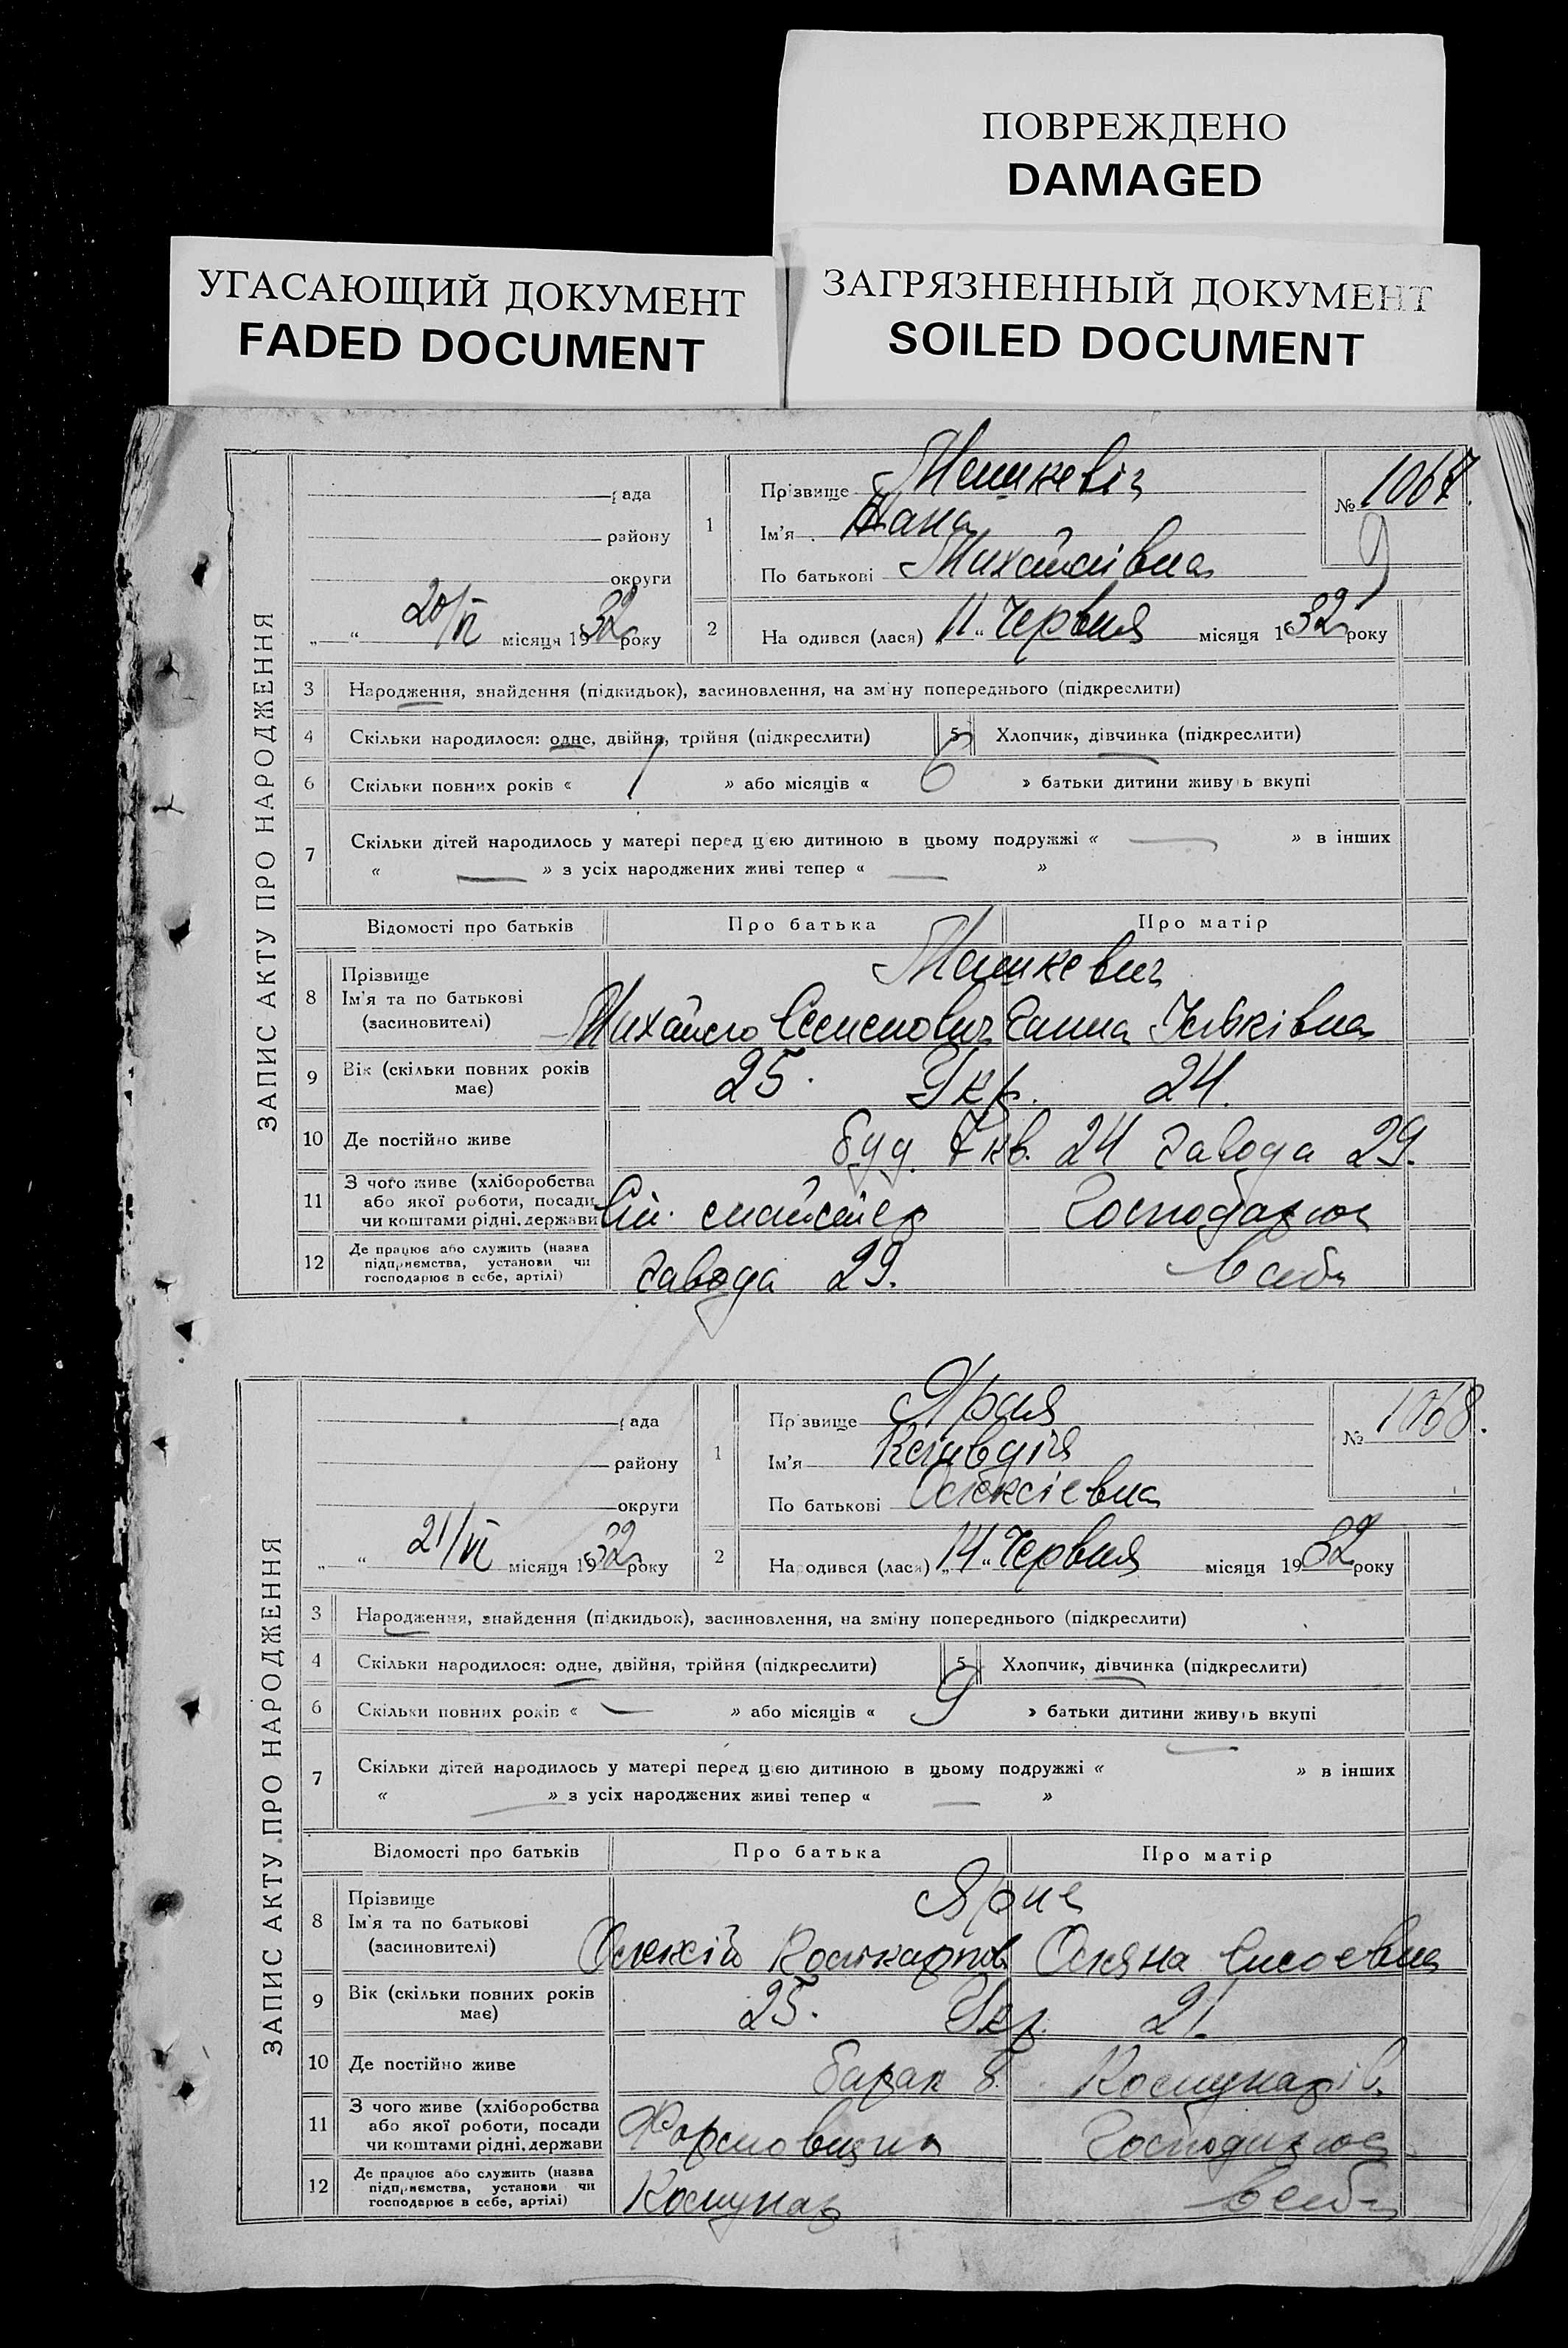 ПОВРЕЖДЕНО
DAMAGED
УГАСАЮЩИЙ ДОКУМЕНТ
FADED DOCUMENT
ЗАГРЯЗНЕННЫЙ ДОКУМЕНТ
SOILED DOCUMENT
ЗАПИС АКТУ ПРО НАРОДЖЕННЯ
рада
району
округи
„ “ 20/VI місяця 1932 року
1
Прізвище Мешкевіч
Ім'я
По батькові Михайлівна
№ 1067.
9
2 На одився (лася) „11“ Червня місяця 1932 року
3 Народження, знайдення (підкидьок), засиновлення, на зміну попереднього (підкреслити)
4 Скільки народилося: одне, двійня, трійня (підкреслити) 5 Хлопчик, дівчинка (підкреслити)
6 Скільки повних років « 1 » або місяців « 6 » батьки дитини живуть вкупі
7 Скільки дітей народилось у матері перед цією дитиною в цьому подружжі « — » в інших
« — » з усіх народжених живі тепер « — »
Відомості про батьків Про батька Про матір
8 Прізвище
Ім'я та по батькові
(засиновителі)
Мешкевич
Михайло Семенович Ганна
9 Вік (скільки повних років
має)
25. Укр. 24.
10 Де постійно живе буд. 7 кв. 24 завода 29.
11 З чого живе (хліборобства
або якої роботи, посади
чи коштами рідні, держави
Ст. майстер Господарює
12 Де працює або служить (назва
підприємства, установи чи
господарює в себе, артілі)
завода 29. в себе
ЗАПИС АКТУ ПРО НАРОДЖЕННЯ
рада
району
округи
„ “ 21/VI місяця 1932 року
1
Прізвище
Ім'я Клавдія
По батькові Олексіевна
№ 1068.
2 Народився (лася) „14“ Червня місяця 1932 року
3 Народження, знайдення (підкидьок), засиновлення, на зміну попереднього (підкреслити)
4 Скільки народилося: одне, двійня, трійня (підкреслити) 5 Хлопчик, дівчинка (підкреслити)
6 Скільки повних років « — » або місяців « 9 » батьки дитини живуть вкупі
7 Скільки дітей народилось у матері перед цією дитиною в цьому подружжі « — » в інших
« — » з усіх народжених живі тепер « — »
Відомості про батьків Про батька Про матір
8 Прізвище
Ім'я та по батькові
(засиновителі)
Олексій Полікарпов Оляна Сисоевна
9 Вік (скільки повних років
має)
25. Укр. 21.
10 Де постійно живе барак 8. Комунарів.
11 З чого живе (хліборобства
або якої роботи, посади
чи коштами рідні, держави
Формовщик Господарює
12 Де працює або служить (назва
підприємства, установи чи
господарює в себе, артілі)
Комунар в себе